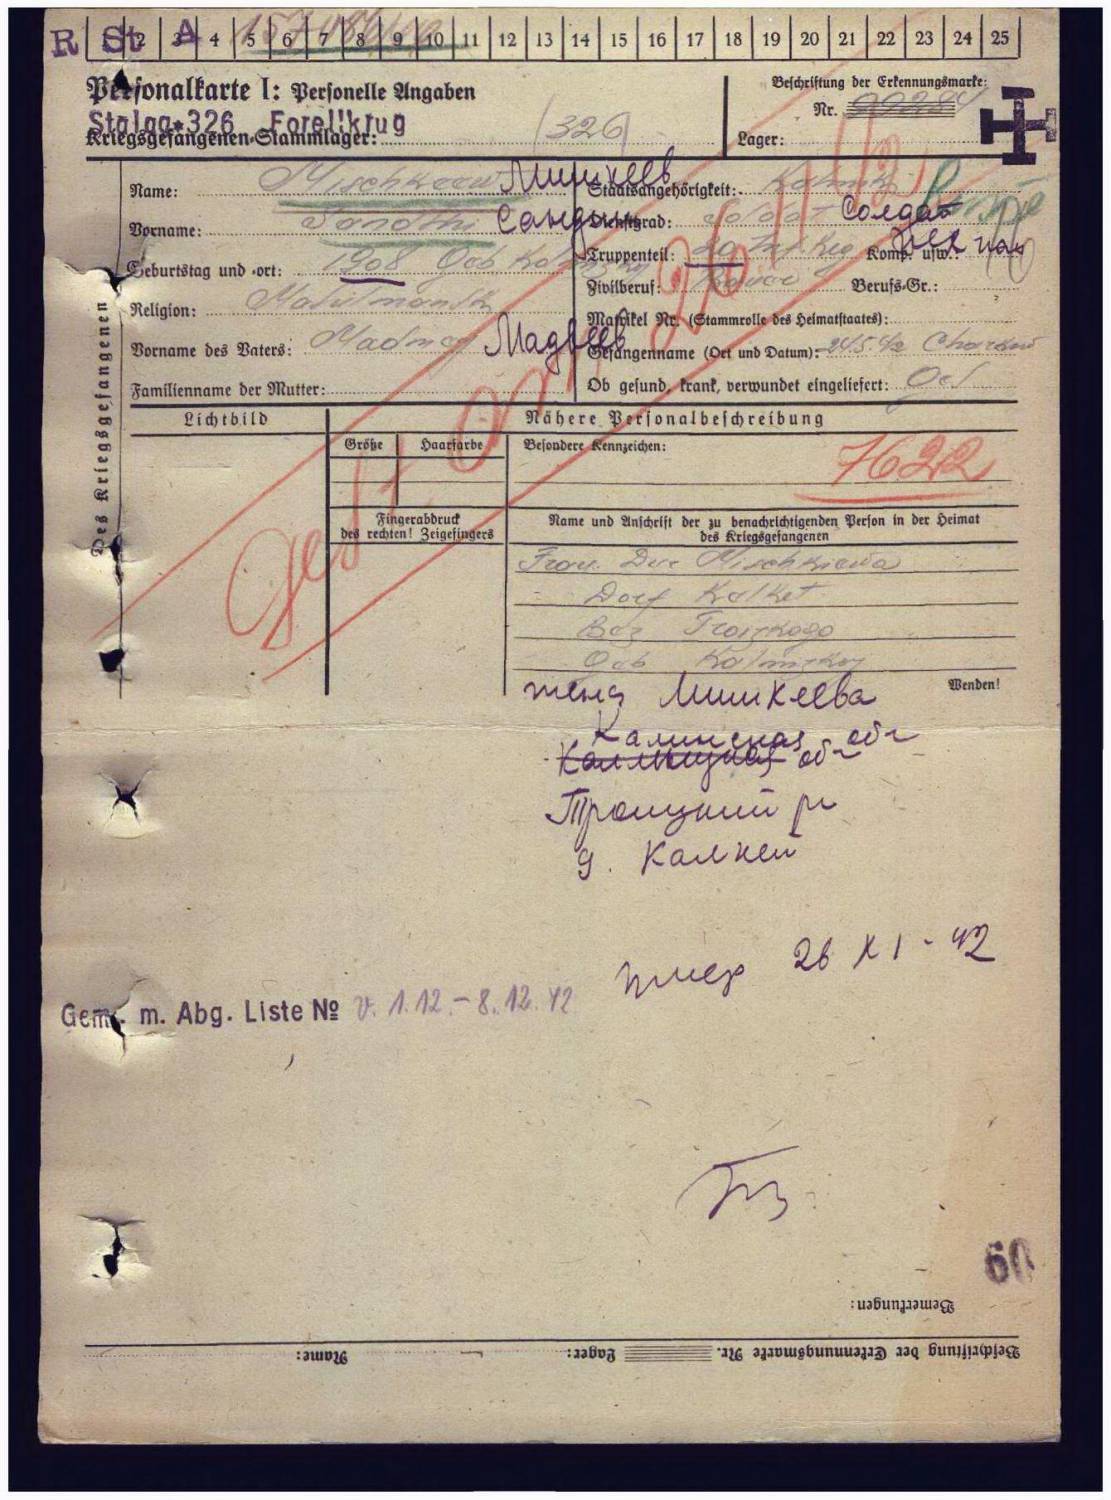 R St A
1 2 3 4 5 6 7 8 9 10 11 12 13 14 15 16 17 18 19 20 21 22 23 24 25
Personalkarte I: Personelle Angaben
Beschriftung der Erkennungsmarke:
Nr.
Stalag 326 Forellkrug
Kriegsgefangenen-Stammlager: (326)
Lager:
Des Kriegsgefangenen
Name: Mischkeew Мишкеев
Vorname: Sandhi
Geburtstag und -ort: 1908
Religion:
Vorname des Vaters: Мадвеев
Familienname der Mutter:
Staatsangehörigkeit: Kalmik
Dienstgrad: Soldat Солдат
Truppenteil: Inf. Reg Komp. usw.:
Zivilberuf: Bauer Berufs-Gr.:
Matrikel Nr. (Stammrolle des Heimatstaates):
Gefangenname (Ort und Datum): 24.5.42 Charkow
Ob gesund, krank, verwundet eingeliefert: Ges
gest. am 26/11
Lichtbild
Nähere Personalbeschreibung
Größe Haarfarbe
Besondere Kennzeichen:
7622
Fingerabdruck
des rechten! Zeigefingers
Name und Anschrift der zu benachrichtigenden Person in der Heimat
des Kriegsgefangenen
Frau Mischkiewa
Dorf Kalket
Troizkogo
Oob
Wenden!
жена Мишкеева
обл
обл
Троицкий р
д. Калкей
умер 26 XI - 42
Gem. m. Abg. Liste № v. 1.12. - 8.12.42
60
Bemerkungen:
Beschriftung der Erkennungsmarke Nr. Lager: Name: